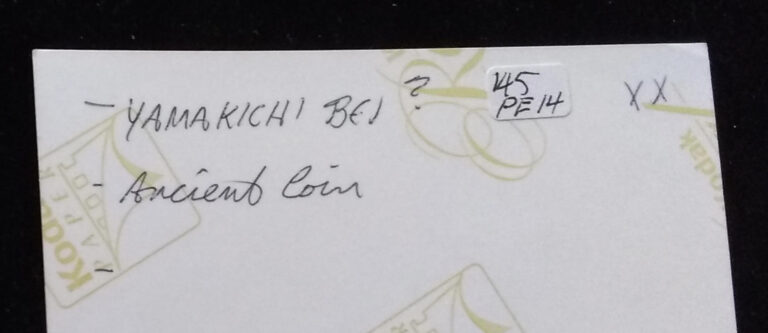 - YAMAKICHI BEI ?
145
PE14
XX
- Ancient Coin
-
Kodak
PAPER
Kodak